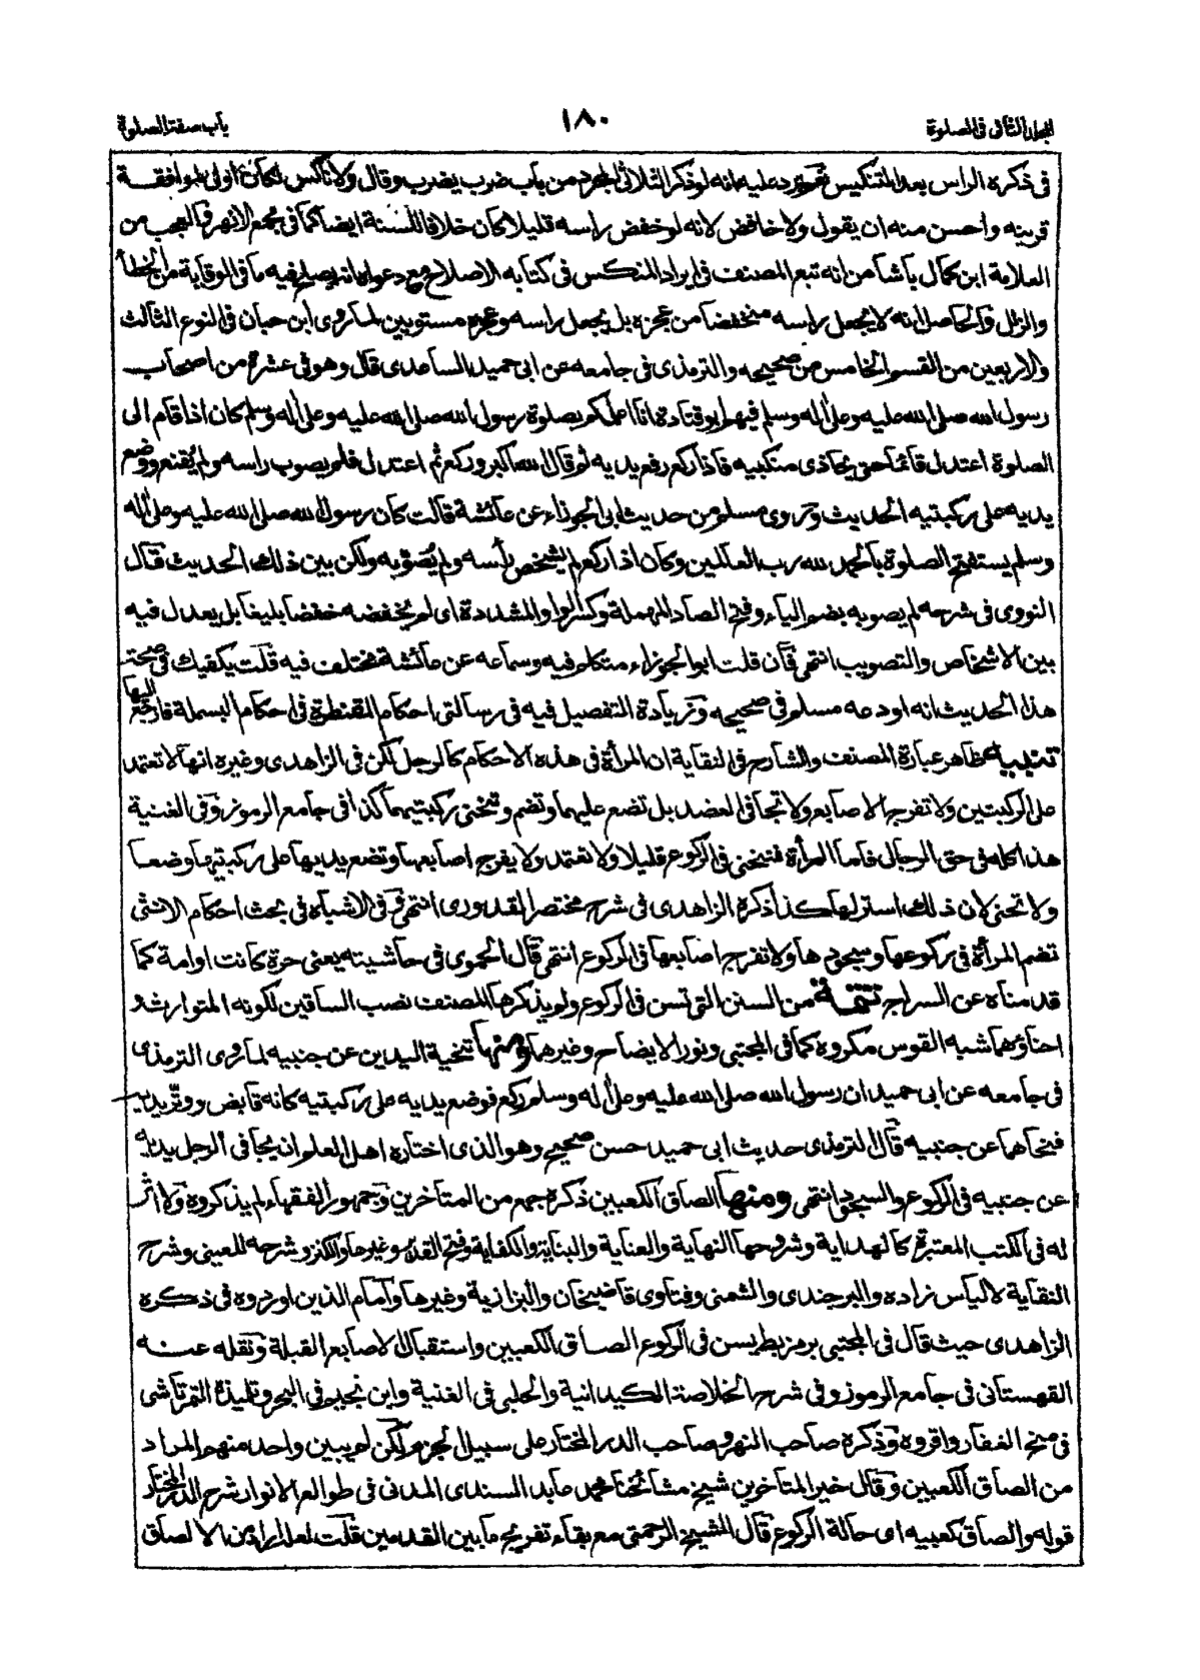 المجلد الثانى فى الصلوة
١٨٠
باب صفة الصلوة
فى ذكره الراس بعد التنكيس نعم يرد عليه انه لو ذكر الثلاثى المجرد من باب ضرب يضرب وقال ولا ناكس لكان اولى لموافقة
قرينه واحسن منه ان يقول ولا خافض لانه لو خفض راسه قليلا كان خلاف السنة ايضا كما فى مجمع الانهر والعجب من
العلامة ابن كمال باشا من انه تبع المصنف فى ايراد المنكس فى كتابه الاصلاح مع دعواه انه يصلح فيه ما فى الوقاية من الخطأ
والزلل والحاصل انه لا يجعل راسه منخفضا من عجزه بل يجعل راسه وعجزه مستويين لما روى ابن حبان فى النوع الثالث
والاربعين من القسم الخامس من صحيحه والترمذى فى جامعه عن ابى حميد الساعدى قال وهو فى عشرة من اصحاب
رسول الله صلى الله عليه وعلى اله وسلم فيهم ابو قتادة انا اعلمكم بصلوة رسول الله صلى الله عليه وعلى اله وسلم كان اذا قام الى
الصلوة اعتدل قائما حتى يحاذى منكبيه فاذا ركع رفع يديه ثم قال الله اكبر وركع ثم اعتدل فلم يصوب راسه ولم يقنع ووضع
يديه على ركبتيه الحديث وروى مسلم من حديث ابى الجوزاء عن عائشة قالت كان رسول الله صلى الله عليه وعلى اله
وسلم يستفتح الصلوة بالحمد لله رب العالمين وكان اذا ركع لم يشخص رأسه ولم يُصَوِّبه ولكن بين ذلك الحديث قال
النووى فى شرحه لم يصوبه بضم الياء وفتح الصاد المهملة وكسر الواو المشددة اى لم يخفضه خفضا بليغا بل يعدل فيه
بين الاشخاص والتصويب انتهى فان قلت ابو الجوزاء متكلم فيه وسماعه عن عائشة مختلف فيه قلت يكفيك فى صحة
هذا الحديث انه اودعه مسلم فى صحيحه وزيادة التفصيل فيه فى رسالتى احكام القنطرة فى احكام البسملة فارجع اليها
تنبيه ظاهر عبارة المصنف والشارح فى النقاية ان المرأة فى هذه الاحكام كالرجل لكن فى الزاهدى وغيره انها لا تعتمد
على الركبتين ولا تفرج الاصابع ولا تجافى العضد بل تضع عليهما وتضم وتنحنى ركبتيهما كذا فى جامع الرموز وفى الغنية
هذا كله فى حق الرجال فاما المرأة فتنحنى فى الركوع قليلا ولا تعتمد ولا يفرج اصابعها وتضع يديها على ركبتيها وضعا
ولا تحنى لان ذلك استر لها كذا ذكره الزاهدى فى شرح مختصر القدورى انتهى وفى الاشباه فى بحث احكام الانثى
تضم المرأة فى ركوعها وسجودها ولا تفرج اصابعها فى الركوع انتهى قال الحموى فى حاشيته يعنى حرة كانت او امة كما
قدمناه عن السراج تتمة من السنن التى تسن فى الركوع ولم يذكرها المصنف نصب الساقين لكونه المتوارث و
احناؤهما شبه القوس مكروه كما فى المجتبى ونور الايضاح وغيرها ومنها تنحية اليدين عن جنبيه لما روى الترمذى
فى جامعه عن ابى حميد ان رسول الله صلى الله عليه وعلى اله وسلم ركع فوضع يديه على ركبتيه كانه قابض ووتّر يديه
فنحاهما عن جنبيه قال الترمذى حديث ابى حميد حسن صحيح وهو الذى اختاره اهل العلم ان يجافى الرجل يديه
عن جنبيه فى الركوع والسجود انتهى ومنها الصاق الكعبين ذكره جمع من المتاخرين وجمهور الفقهاء لم يذكروه ولا اثر
له فى الكتب المعتبرة كالهداية وشروحها النهاية والعناية والبناية والكفاية وفتح القدير وغيرها والكنز وشرحه للعينى وشرح
النقاية لالياس زاده والبرجندى والشمنى وفتاوى قاضيخان والبزازية وغيرها وامام الذين اوردوه فى ذكره
الزاهدى حيث قال فى المجتبى برمز بط يسن فى الركوع الصاق الكعبين واستقبال الاصابع القبلة ونقله عنه
القهستانى فى جامع الرموز وفى شرح الخلاصة الكيدانية والحلبى فى الغنية وابن نجيم فى البحر وتلميذه التمرتاشى
فى منح الغفار واقروه وذكره صاحب النهر وصاحب الدر المختار على سبيل الجزم لكن لم يبين واحد منهم المراد
من الصاق الكعبين وقال خير المتاخرين شيخ مشائخنا محمد عابد السندى المدنى فى طوالع الانوار شرح الدر المختار
قوله والصاق كعبيه اى حالة الركوع قال الشيخ الرحمتى مع بقاء تفريج ما بين القدمين قلت لعله اراد من الالصاق